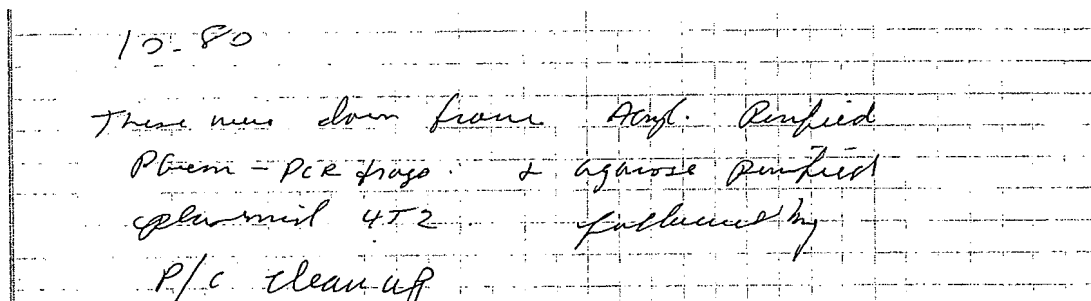 10-80
These were down from Acryl. Purified
PGem - PCR frags. & agarose purified
plasmid 4T2 followed by
P/C clean up